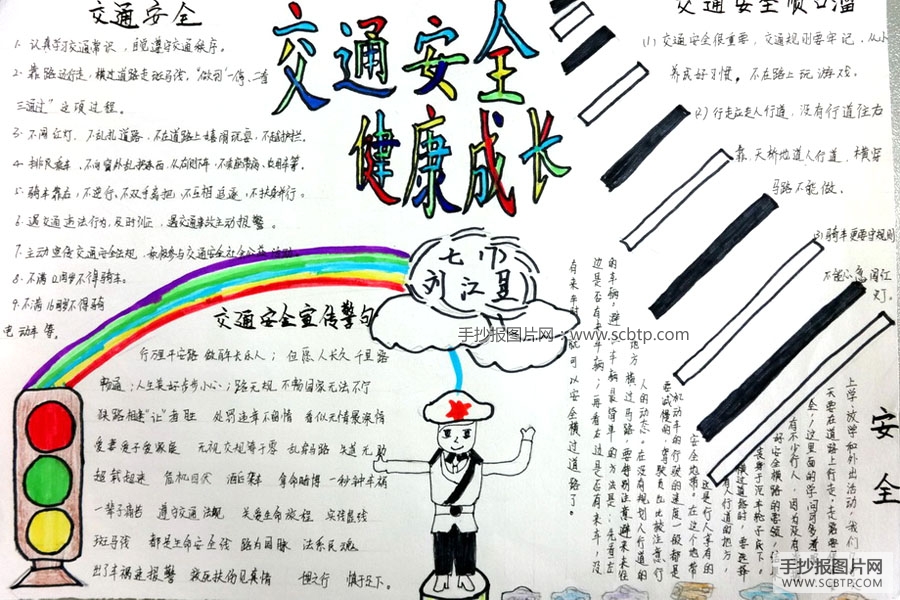 交通安全
1. 认真学习交通常识，自觉遵守交通秩序。
2. 靠路边行走，横过道路走斑马线，"做到"一停、二看
三通过"这项过程。
3. 不闯红灯，不乱扎道路，不在道路上嬉闹玩耍，不
4. 不向窗外乱扔东西
5. 骑车靠右，不逆行，不双手离把，不互相追逐，不扶身并行。
6. 遇交通违法行为，及时纠正，遇交通事故主动报警。
7. 主动宣传交通安全法规，积极参与交通安全社会公益活动。
8. 不满12周岁不得骑车。
9. 不满16周岁不得骑
电动车等。
交通安全
健康成长
交通安全顺口溜
(1) 交通安全很重要，交通规则要牢记，从小
养成好习惯，不在路上玩游戏。
(2) 行走应走人行道，没有行道往右
靠，天桥地道人行道，横穿
马路不能做。
(3) 骑车更要守规则
不能小急闯红
灯。
七
刘江
交通安全宣传警句
行万里平安路 做百年长乐人； 但愿人长久 千里路
畅通；人生美好步步小心；路无规 不畅国家无法不宁
铁路相逢"让"者胜 处罚违章不留情 看似无情最深情
爱妻爱子爱家庭 无视交规等于零 乱穿马路 失道无助
超载超速 危机四伏 酒后驾车 拿命赌博 一秒钟车祸
一辈子痛苦 遵守交通法规 关爱生命旅程 实线虚线
斑马线 都是生命安全线 路为国脉 法系民魂
出了车祸速报警 救死扶伤见真情 慎于足下。
上学、放学和外出活动，我们
天天要在道路上行走，走路要
全，这里面的学问可多着
有不少行人，因为没有
横过道路时，要选择
有人行道的地方，
这是行人享有的
安全地带。在这个地带
机动车的行驶的速度一般都是
要减慢的，驾驶员也比较注意行
人的动态。在没有规划人行道的
地方横过马路，要特别注意避来来往
的车辆。避让车辆最简单的方法是：先看左
边是否有来车，没
有来车，就可以安全横过道路了。
安全
手抄报图片网 www.scbtp.com
手抄报图片网
WWW.SCBTP.COM